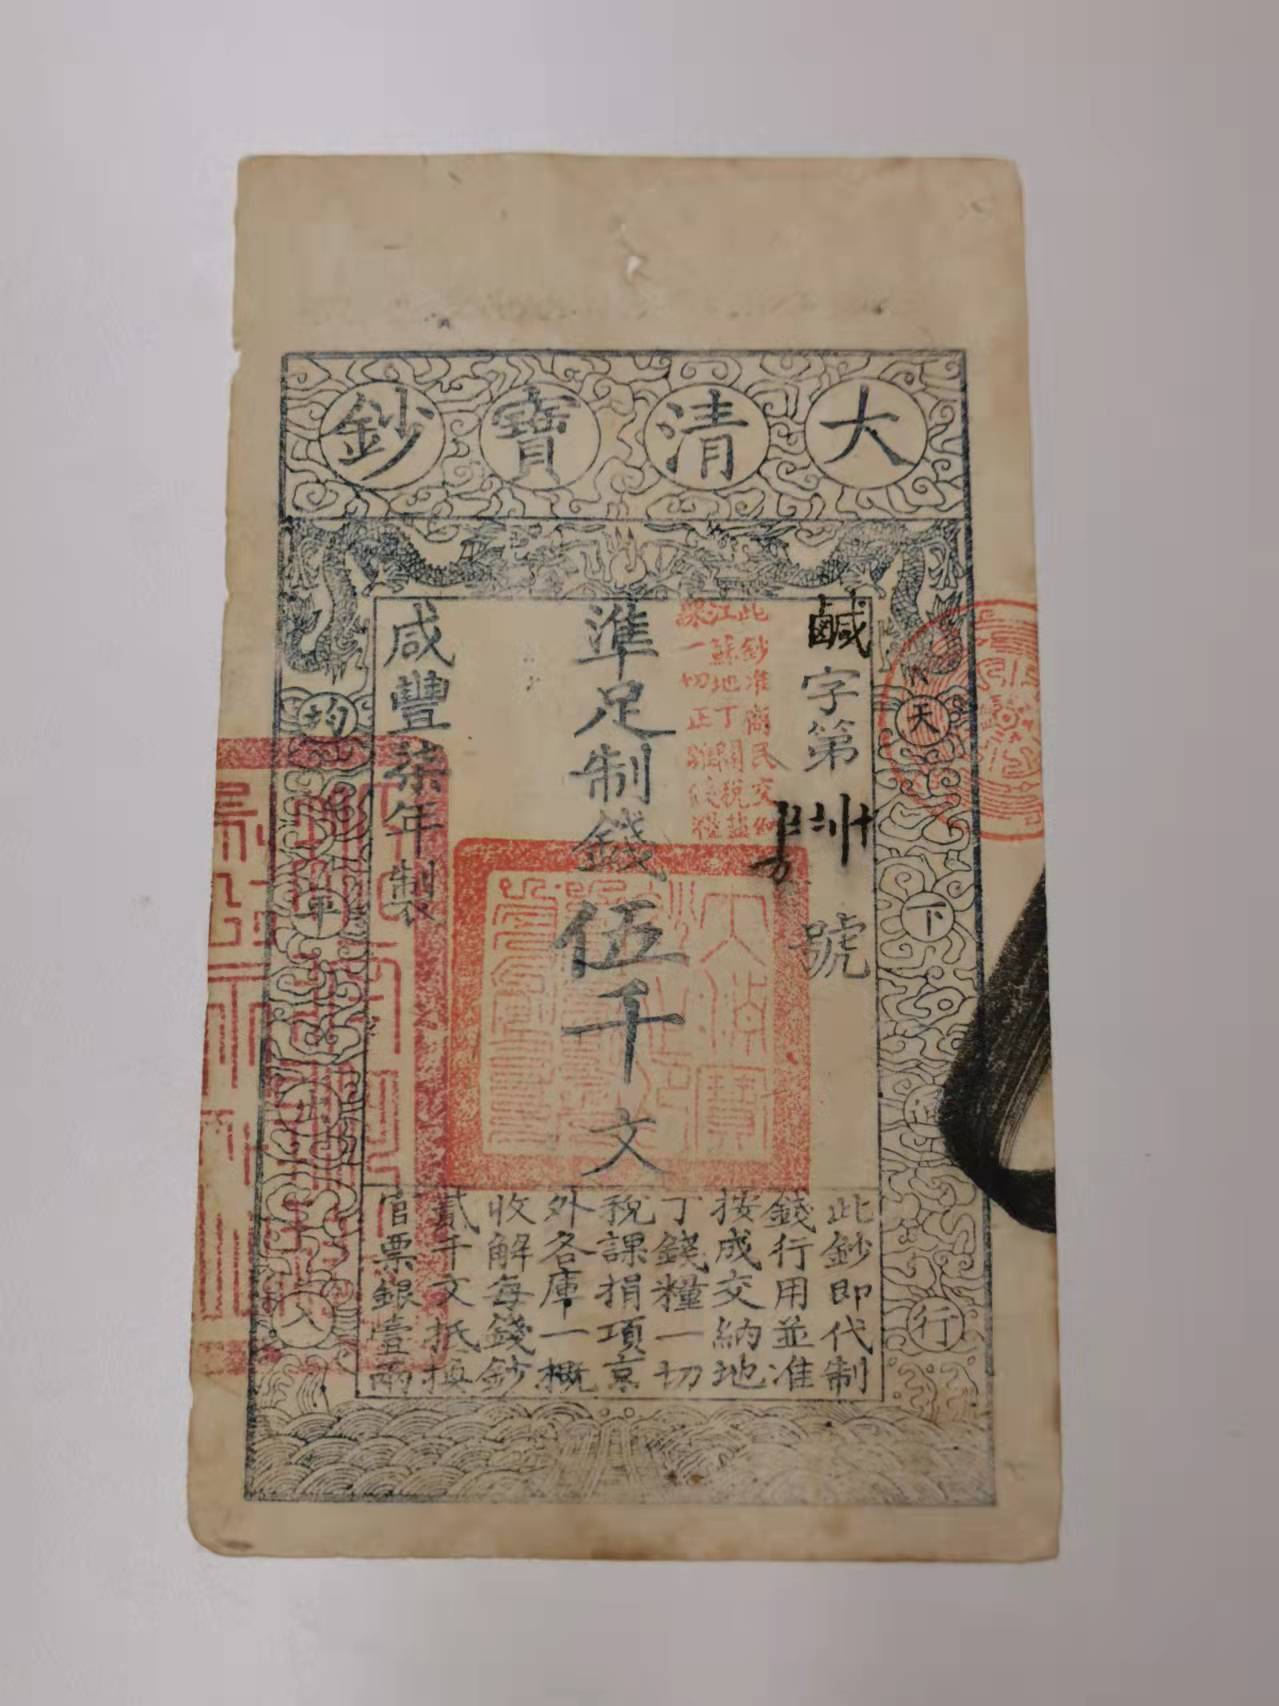 大清寶鈔
天下
行
均平出入
鹹字第
號
此鈔准商民交納
江蘇地丁關稅鹽
課一切正雜
準足制錢伍千文
咸豐柒年製
大清寶
此鈔即代制
錢行用並准
按成交納地
丁錢糧一切
稅課捐項京
外各庫一概
收解每錢鈔
貳千文抵換
官票銀壹兩